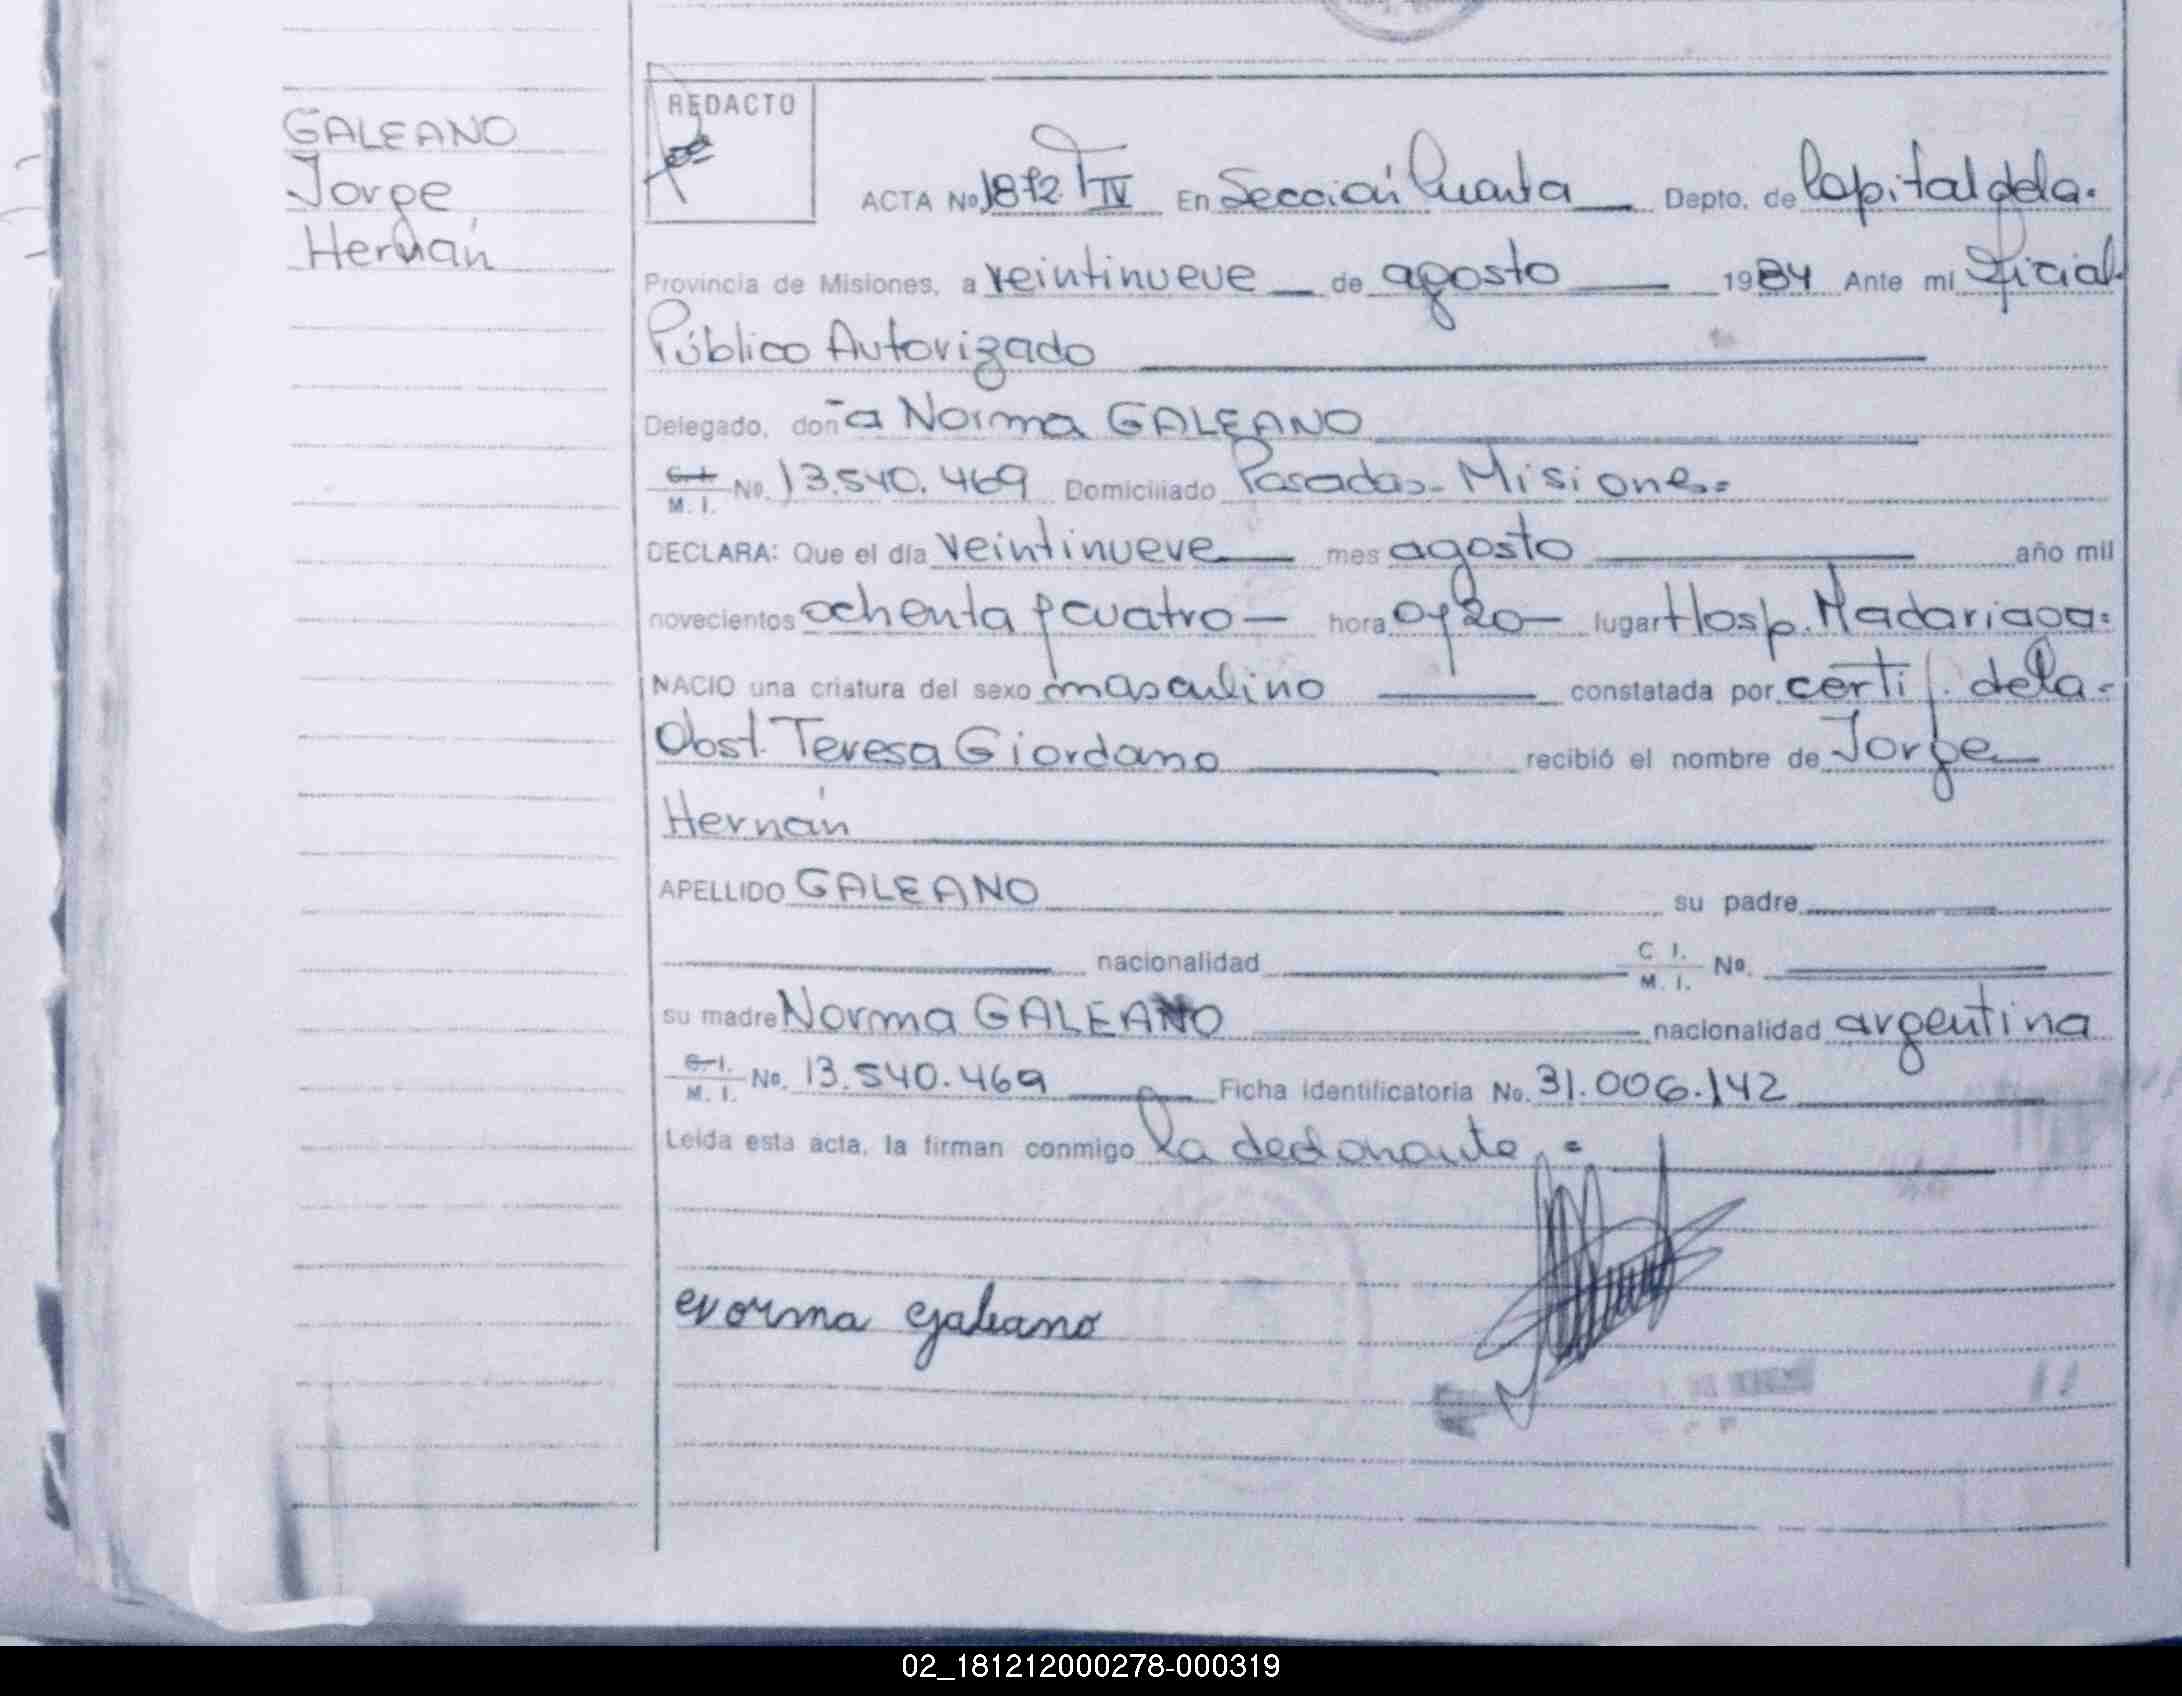 GALEANO
Jorge
Hernán
REDACTO
ACTA Nº 1872 T IV En Sección Cuarta Depto. de Capital de la.
Provincia de Misiones, a veintinueve de agosto 1984 Ante mi Oficial
Público Autorizado
Delegado, doña Norma GALEANO
C. I. M. I. Nº. 13.540.469 Domiciliado Posadas- Misiones=
DECLARA: Que el día veintinueve mes agosto año mil
novecientos ochenta y cuatro- hora 0y20- lugar Hosp. Madariaga.
NACIO una criatura del sexo masculino constatada por certif. de la-
Obst. Teresa Giordano recibió el nombre de Jorge
Hernán
APELLIDO GALEANO su padre
nacionalidad C I. M. I. Nº.
su madre Norma GALEANO nacionalidad argentina
C. I. M. I. Nº. 13.540.469 Ficha identificatoria No. 31.006.142
Leida esta acta, la firman conmigo la declarante.=
Norma Galeano
02_181212000278-000319